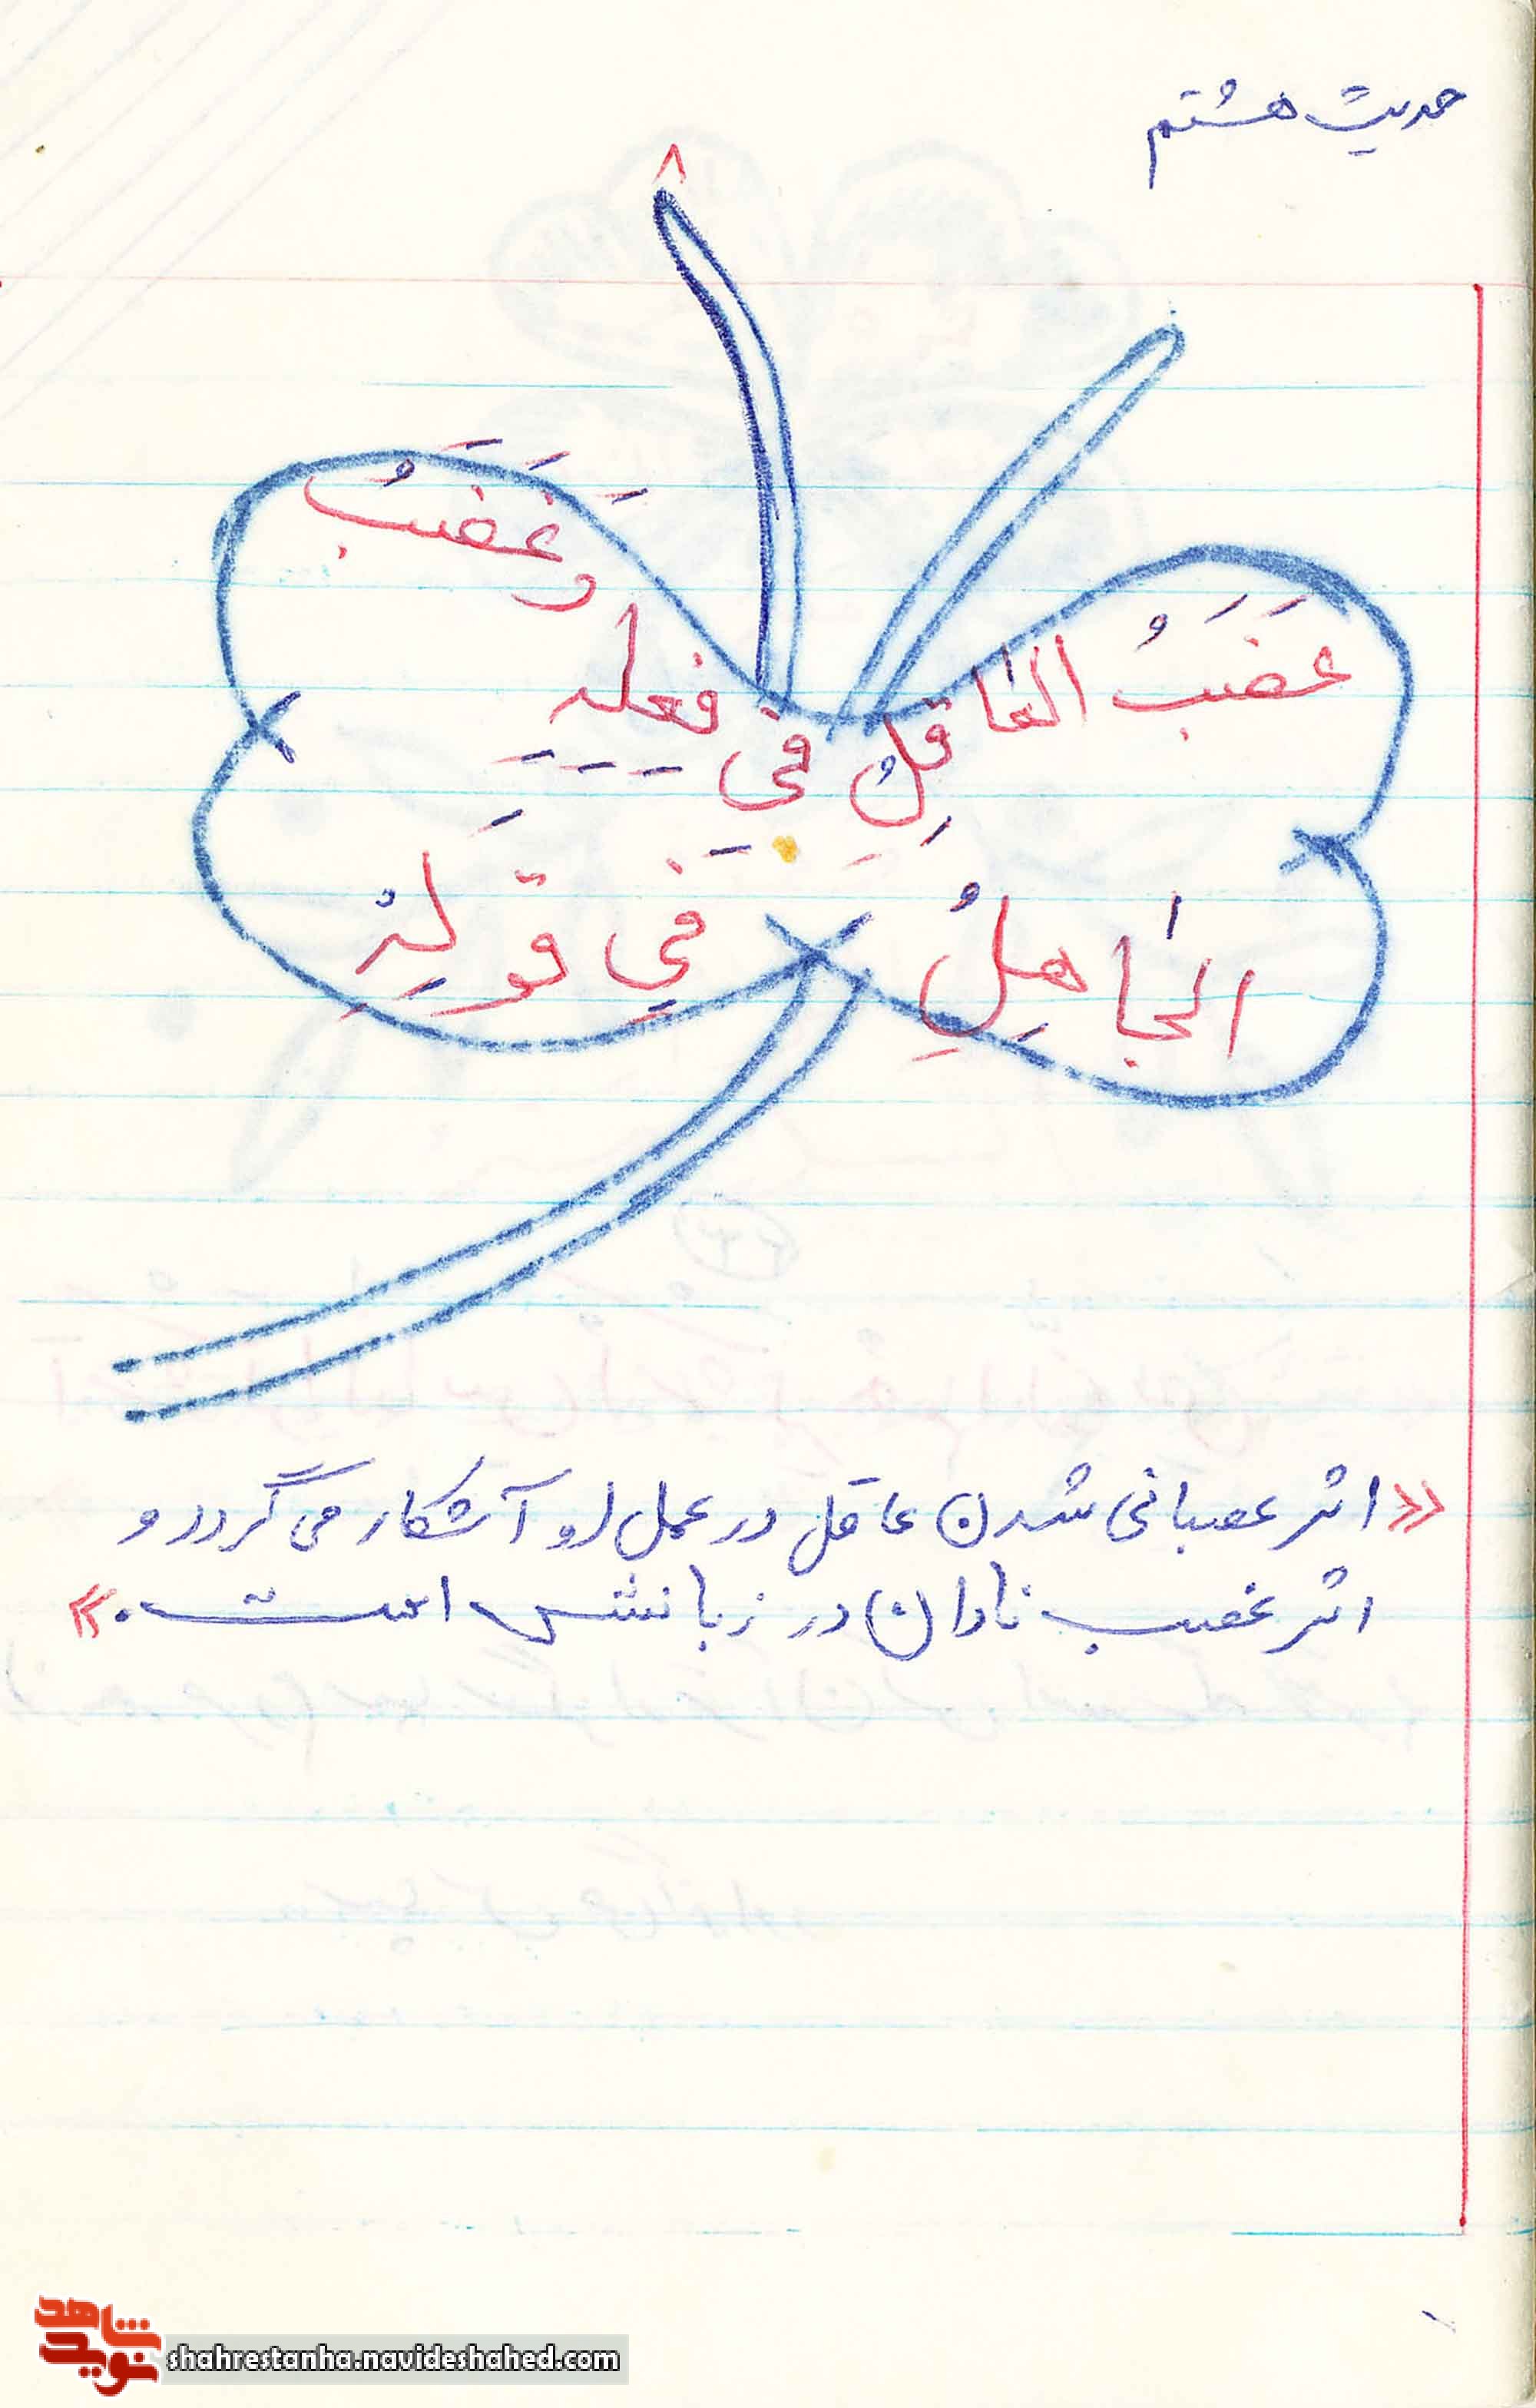 حدیث هشتم
۸
غَضَبُ العٰاقِلُ فِي فِعلِهِ وَغَضَبُ
الجٰاهِلُ فِي قَولِهُ
«اثر عصبانی شدن عاقل در عمل او آشکار می گردد و
اثر غضب نادان در زبانش است.»
نوید شاهد
shahrestanha.navideshahed.com